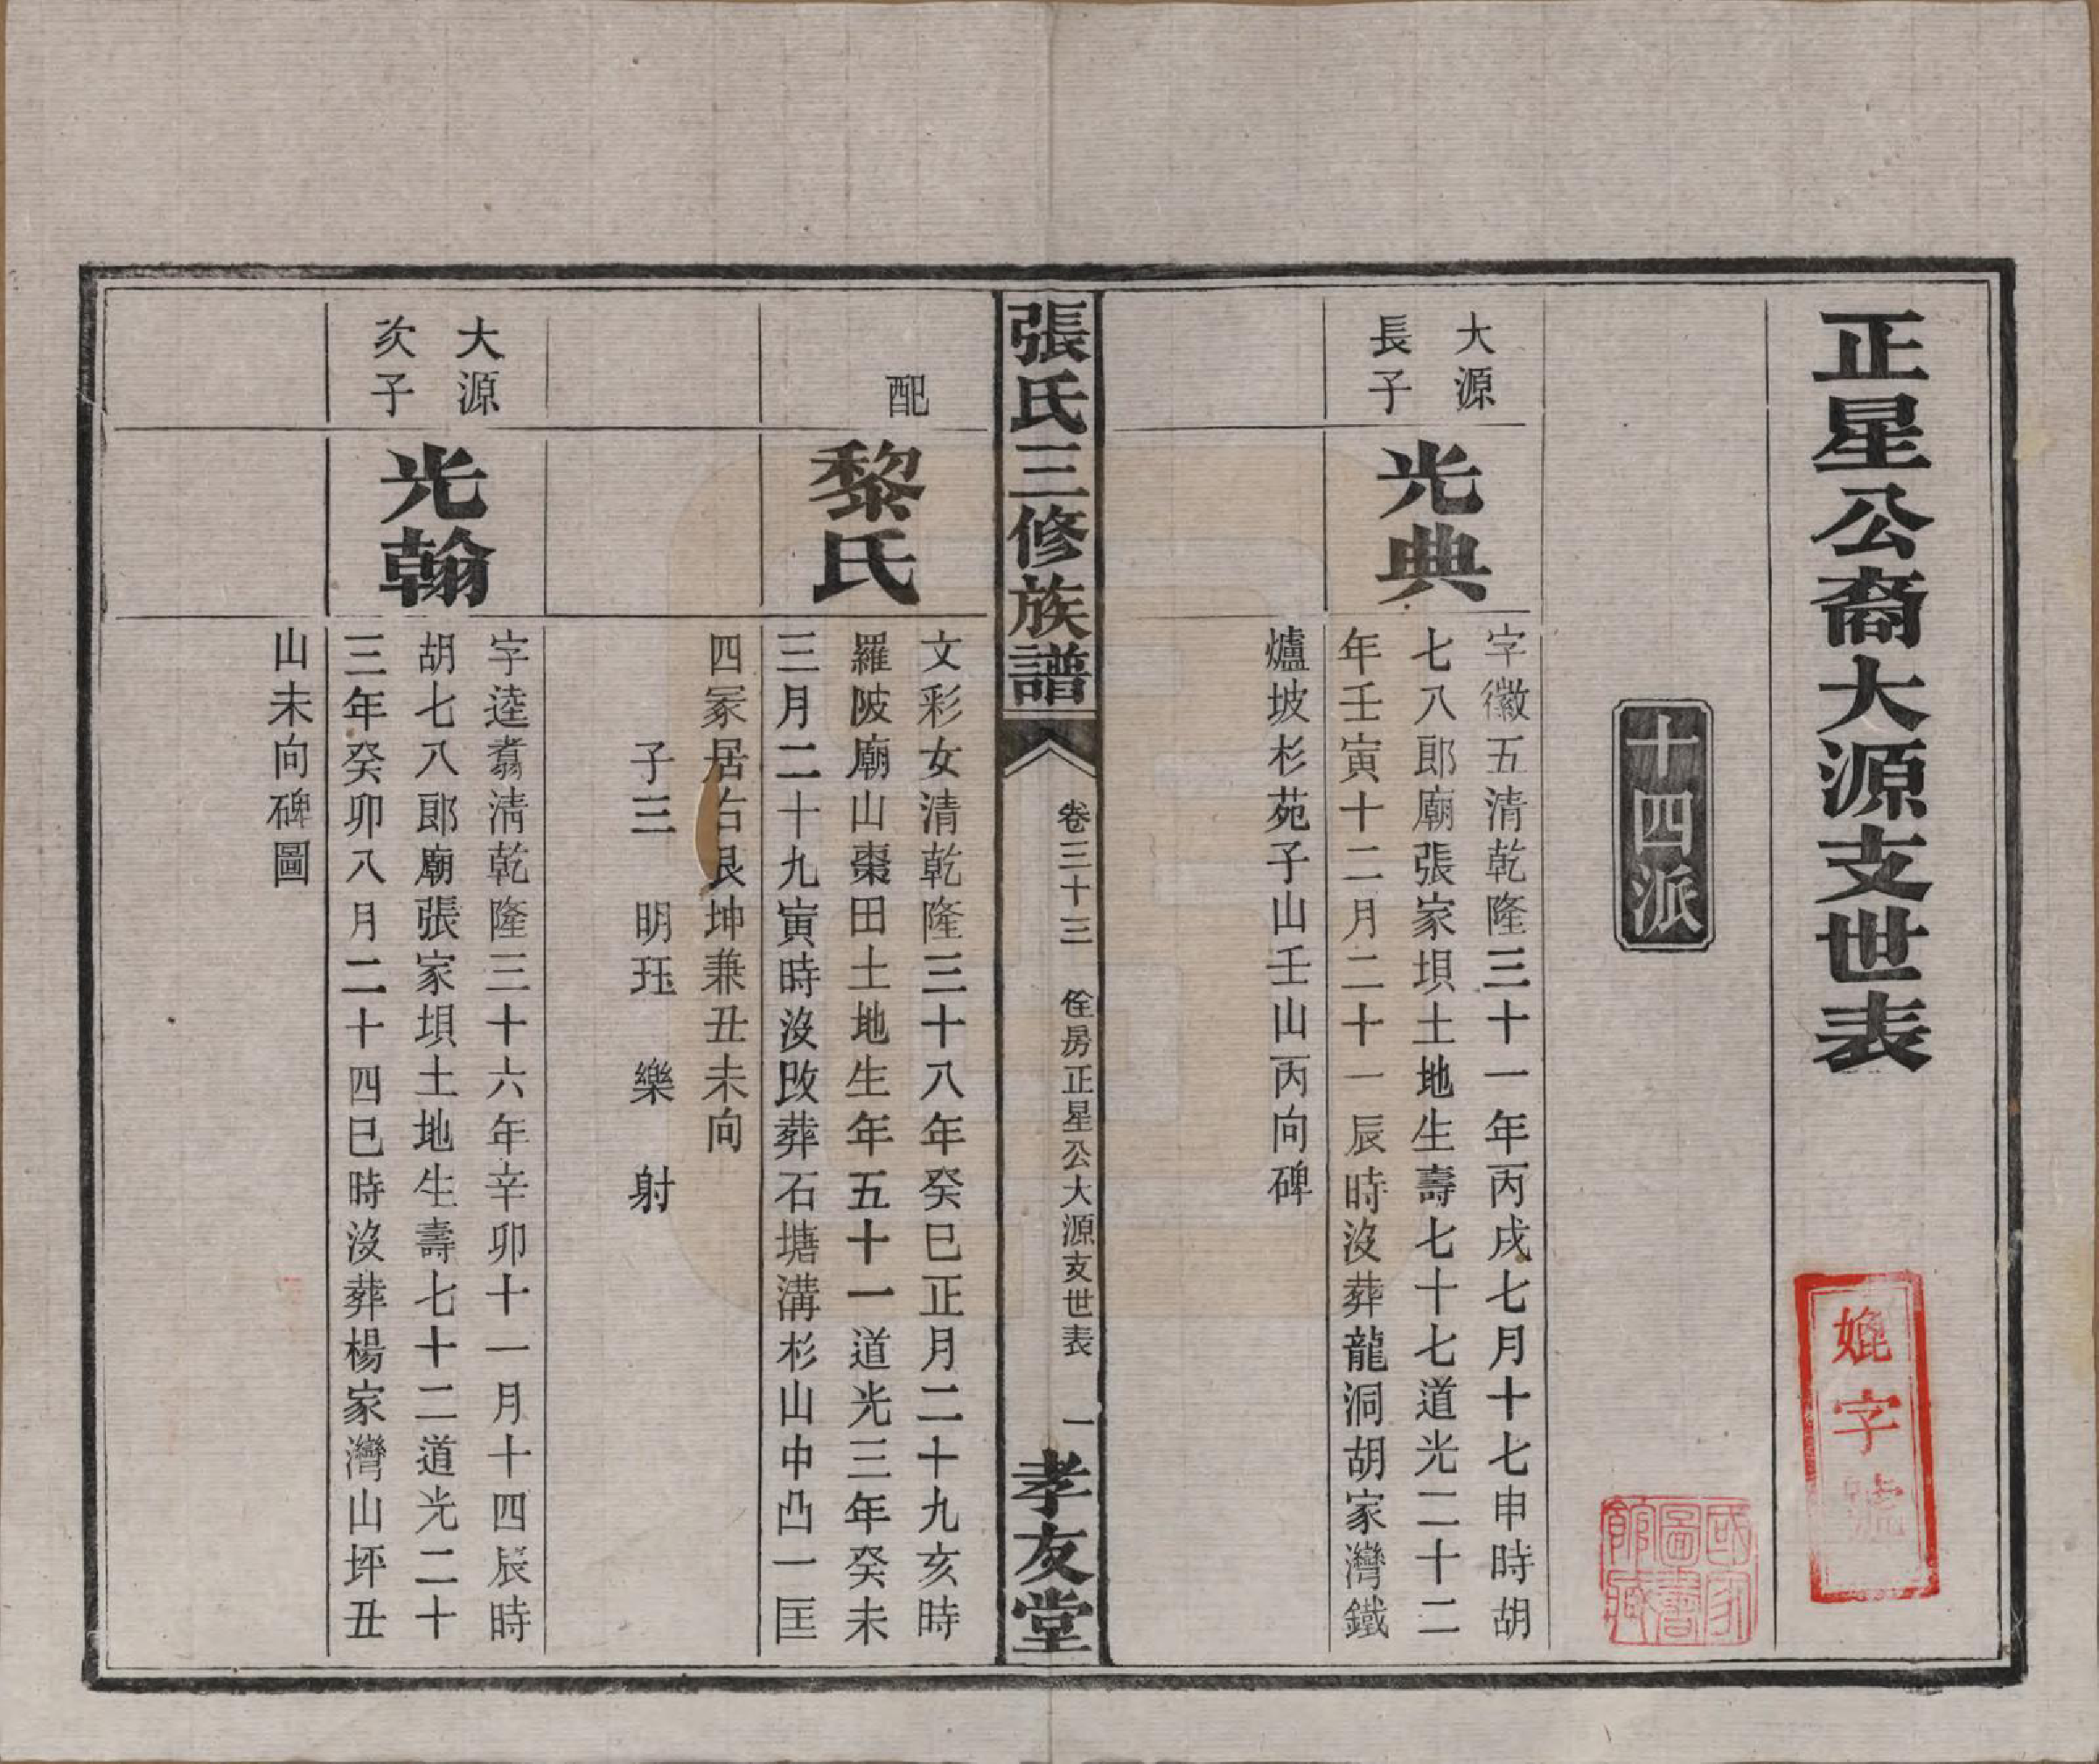 正星公裔大源支世表
媲字號
國家圖書館藏
十四派
大源
長子
光典
字徽五清乾隆三十一年丙戌七月十七申時胡
七八郎廟張家垻土地生壽七十七道光二十二
年壬寅十二月二十一辰時沒葬龍洞胡家灣鐵
爐坡杉苑子山壬山丙向碑
張氏三修族譜
卷三十三 佺房正星公大源支世表 一
孝友堂
配
黎氏
文彩女清乾隆三十八年癸巳正月二十九亥時
羅陂廟山棗田土地生年五十一道光三年癸未
三月二十九寅時沒改葬石塘溝杉山中凸一匡
四冢居右艮坤兼丑未向
子三 明珏 樂 射
大源
次子
光翰
字逵翥清乾隆三十六年辛卯十一月十四辰時
胡七八郎廟張家垻土地生壽七十二道光二十
三年癸卯八月二十四巳時沒葬楊家灣山坪丑
山未向碑圖